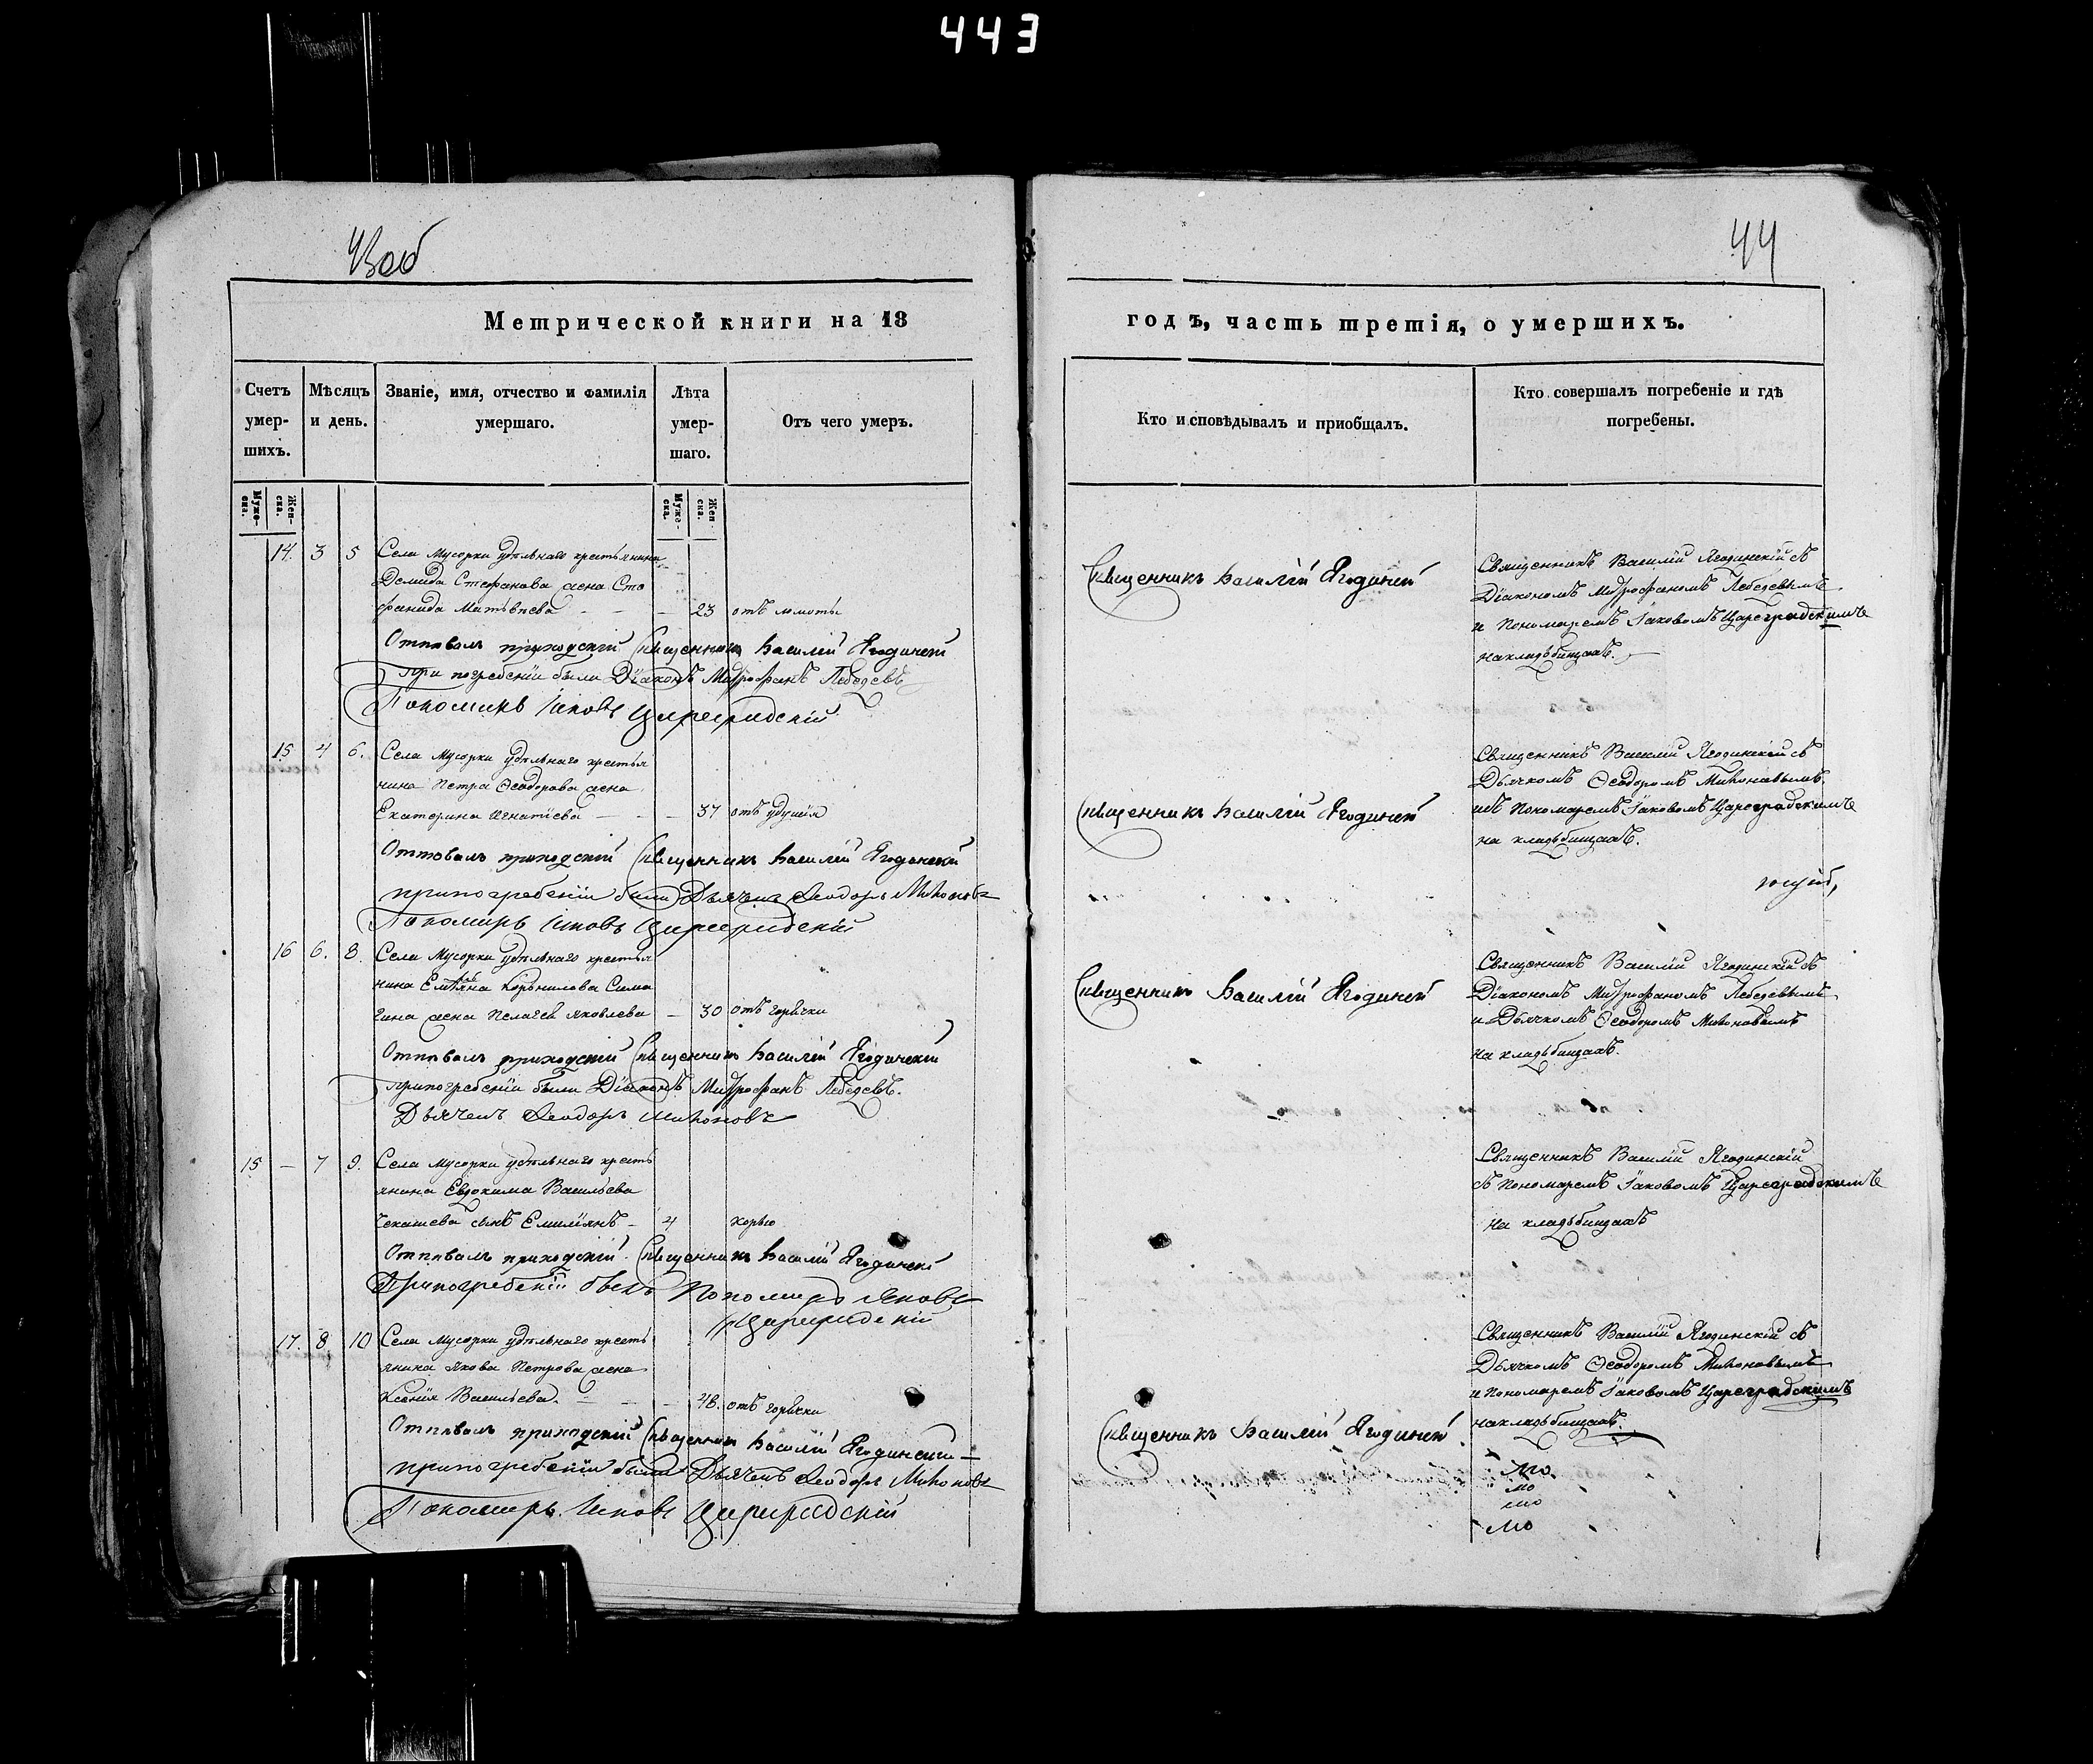 443
43об
44
Метрической книги на 18
годъ, часть третія, о умершихъ.
Счетъ умер-шихъ.
Мѣсяцъ и день.
Званіе, имя, отчество и фамилія умершаго.
Лѣта умер-шаго.
Отъ чего умеръ.
Кто исповѣдывалъ и приобщалъ.
Кто совершалъ погребеніе и гдѣ погребены.
Муже-ска.
Жен-ска.
Муже-ска.
Жен-ска.
14. 3 5 Села Мусорки удѣльнаго крестьянина
Демида Стефанова жена Сте
фанида Матвѣева — 23 отъ ломоты
Отпѣвалъ приходскій Священникъ Василій Ягодинскій
при погребеніи были Діаконъ Митрофанъ Лебедевъ
Пономарь Іяковъ Цареградскій
Священникъ Василій Ягодинскій
Священникъ Василій Ягодинскій съ
Діакономъ Митрофаномъ Лебедевымъ
и Пономаремъ Іаковомъ Цареградскимъ
на кладьбищахъ.
15 4 6. Села Мусорки удѣльнаго крестья
нина Петра Ѳеодорова жена
Екатерина Игнатіева — 37 отъ удушія
Отпѣвалъ приходскій Священникъ Василій Ягодинскій
при погребеніи были Дьячекъ Ѳеодоръ Миѳоновъ
Пономарь Іяковъ Цареградскій
Священникъ Василій Ягодинскій
Священникъ Василій Ягодинскій съ
Дьячкомъ Ѳеодоромъ Миѳоновымъ
и съ Пономаремъ Іаковомъ Цареградскимъ
на кладьбищахъ.
16 6. 8. Села Мусорки удѣльнаго крестья
нина Емельяна Корьнилова Сима
гина жена Пелагея Яковлева — 30 отъ горячки
Отпѣвалъ приходскій Священникъ Василій Ягодинскій
при погребеніи были Діаконъ Митрофанъ Лебедевъ.
Дьячекъ Ѳеодоръ Миѳоновъ
Священникъ Василій Ягодинскій
Священникъ Василій Ягодинскій съ
Діакономъ Митрофаномъ Лебедевымъ
и Дьячкомъ Ѳеодоромъ Миѳоновымъ
на кладьбищахъ.
15 — 7 9. Села Мусорки удѣльнаго кресть
янина Евдокима Васильева
Чекашева сынъ Емиліянъ — 4 корью
Отпѣвалъ приходскій Священникъ Василій Ягодинскій
При погребеніи былъ Пономарь Яковъ
Цареградскій
Священникъ Василій Ягодинскій
съ Пономаремъ Іаковомъ Цареградскимъ
на кладьбищахъ
17. 8. 10 Села Мусорки удѣльнаго кресть
янина Якова Петрова жена
Ксенія Васильева — 48. отъ горячки
Отпѣвалъ приходскій Священникъ Василій Ягодинскій
при погребеніи были Дьячекъ Ѳеодоръ Миѳоновъ
Пономарь Іяковъ Цареградскій
Священникъ Василій Ягодинскій
Священникъ Василій Ягодинскій съ
Дьячкомъ Ѳеодоромъ Миѳоновымъ
и Пономаремъ Іаковомъ Цареградскимъ
на кладьбищахъ.
мо
мо
мо
мо